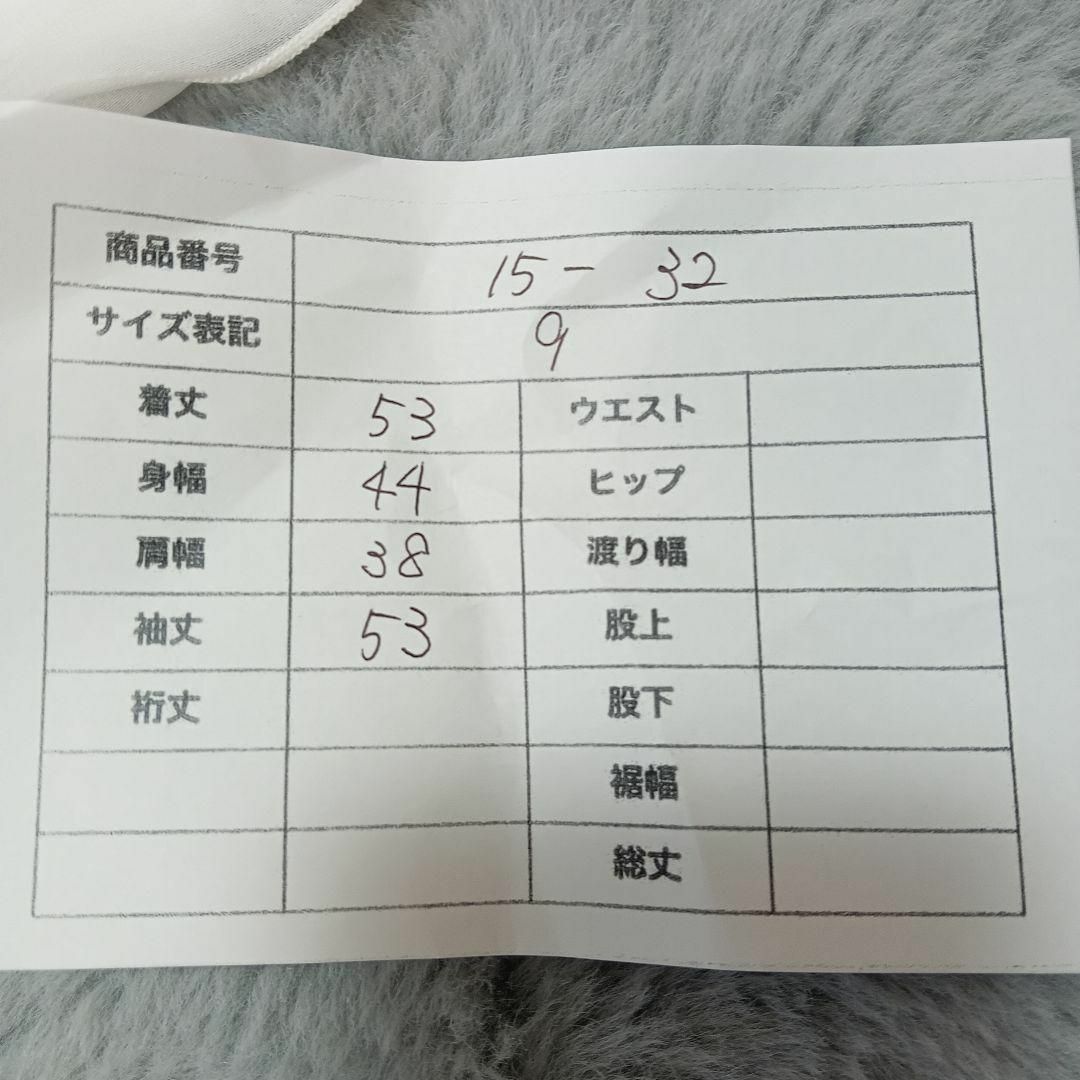 商品番号 15 - 32
サイズ表記 9
着丈 53 ウエスト
身幅 44 ヒップ
肩幅 38 渡り幅
袖丈 53 股上
裄丈 股下
裾幅
総丈